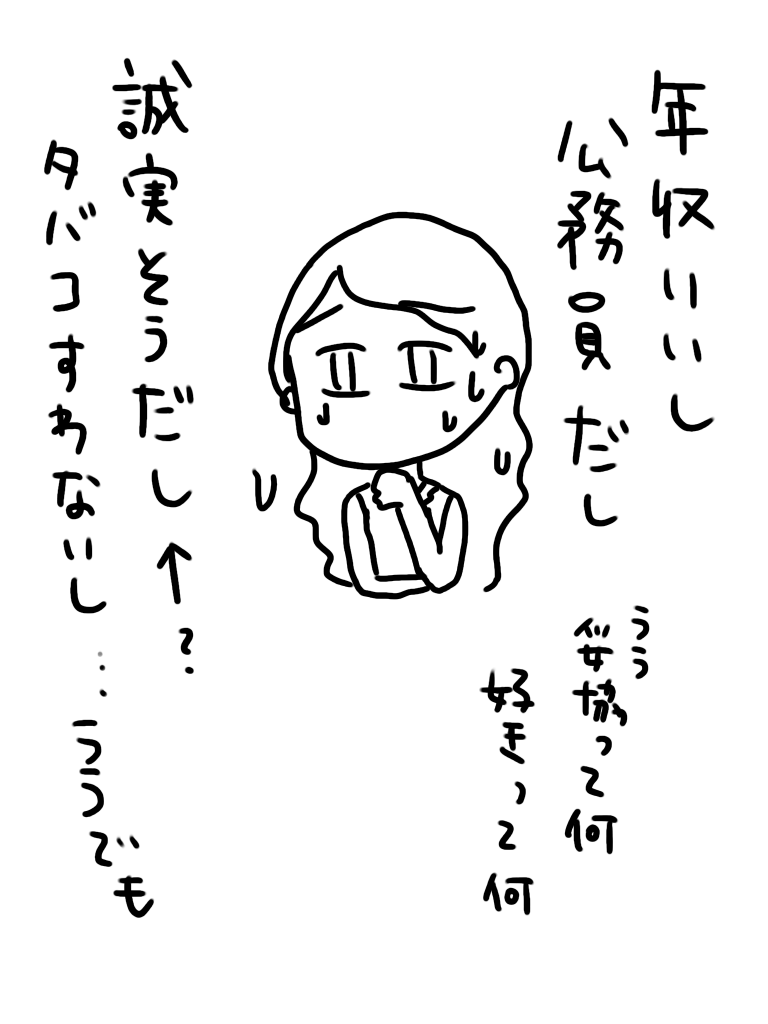 年収いいし
公務員だし
うう
妥協って何
好きって何
誠実そうだし←?
タバコすわないし…ううでも